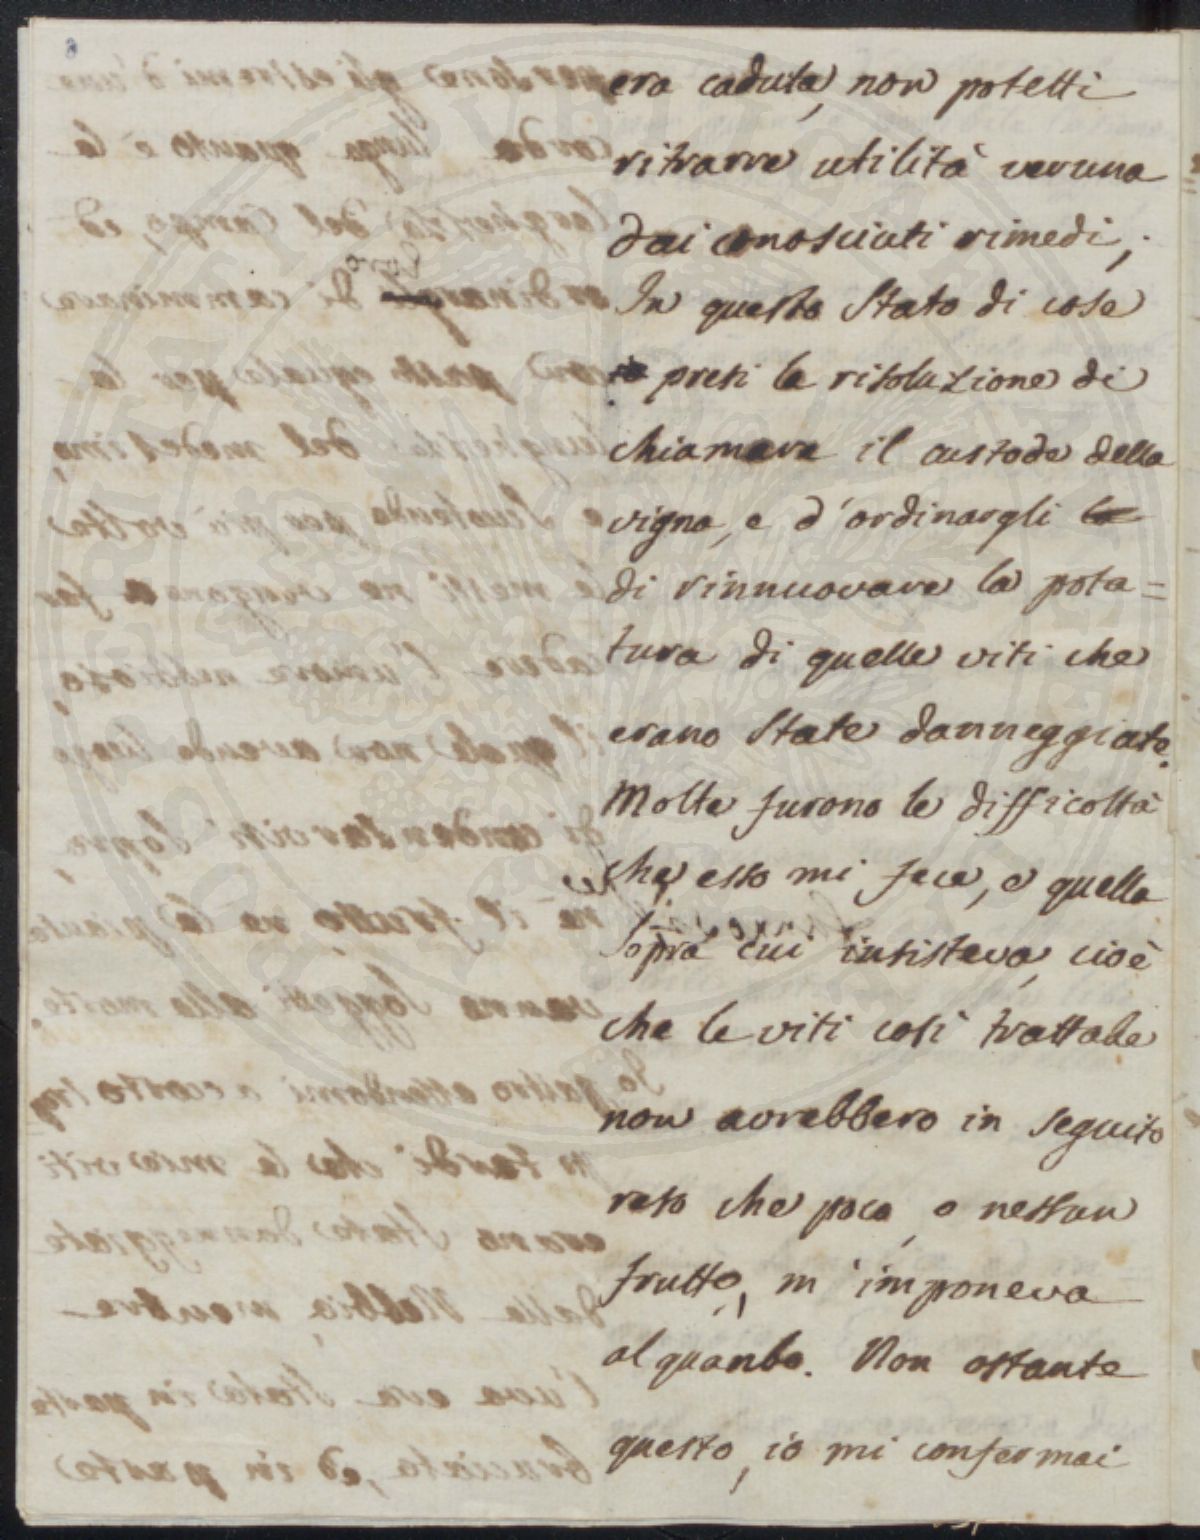 era caduta, non potetti
ritrarre utilità veruna
dai conosciuti rimedj;
In questo Stato di cose
presi la risoluzione di
chiamare il custode della
vigna, e d'ordinargli
di rinnuovare la pota=
tura di quelle viti che
erano State danneggiate.
Molte furono le difficoltà
che esso mi fece, e quella
sopra cui insisteva, cioè
che le viti così trattate
non avrebbero in seguito
reso che poco, o nessun
frutto, m'imponeva
alquanto. Non ostante
questo, io mi confermai